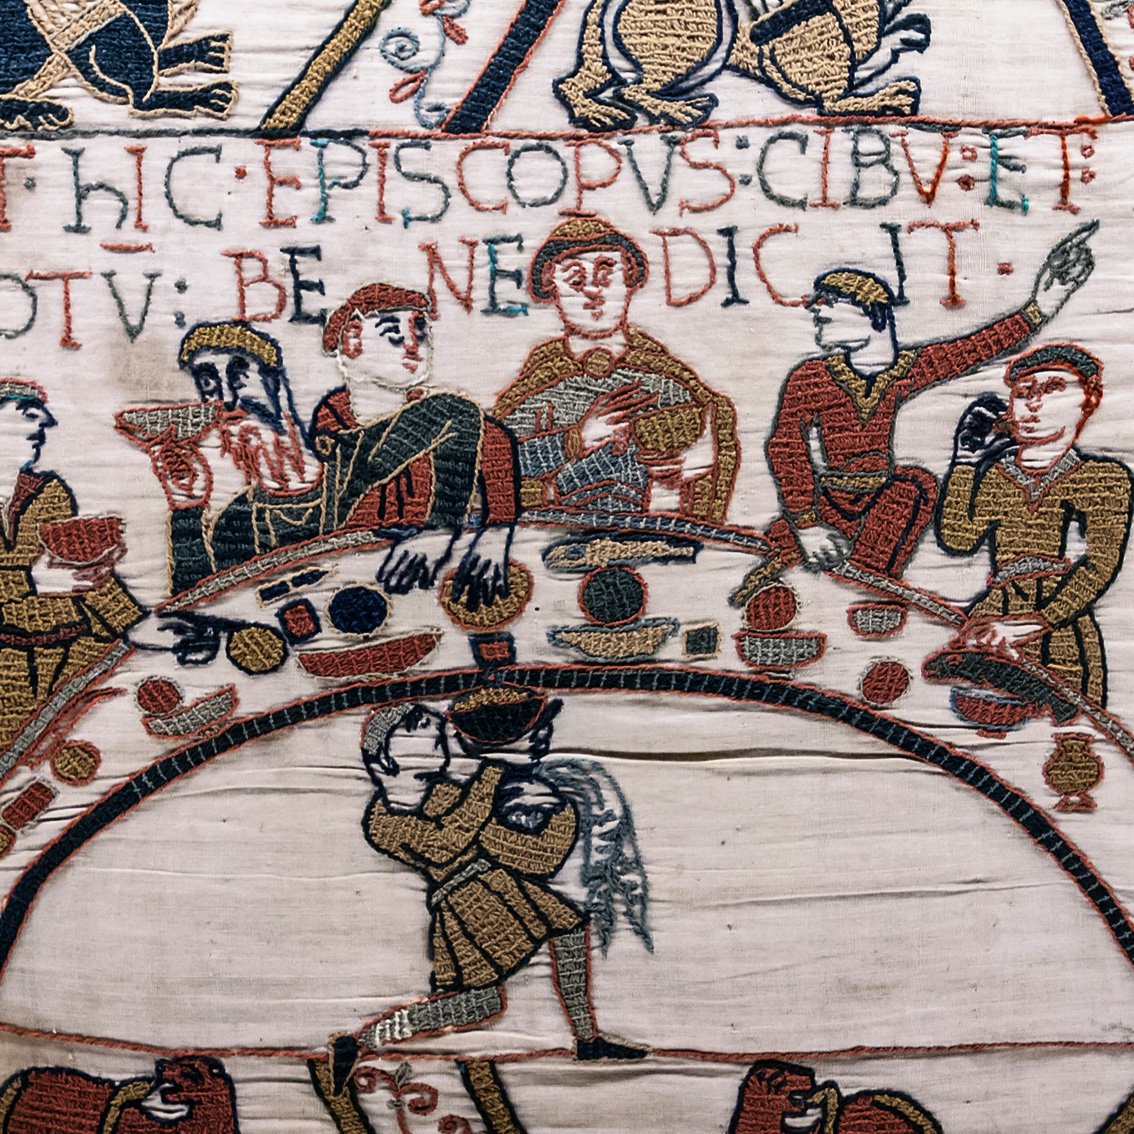 T · hIC · EPISCOPVS : CIBV : ET :
OTV : BENEDICIT ·